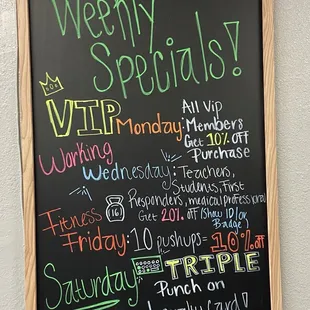 Weekly
Specials!
VIP Monday: All Vip
Members
Get 10% off
Purchase
Working
Wednesday: Teachers,
Students, First
Responders, medical professional
Get 20% off (Show ID or
Badge)
Fitness 16
Friday: 10 pushups = 10% off
Saturday TRIPLE
Punch on
Loyalty Card!